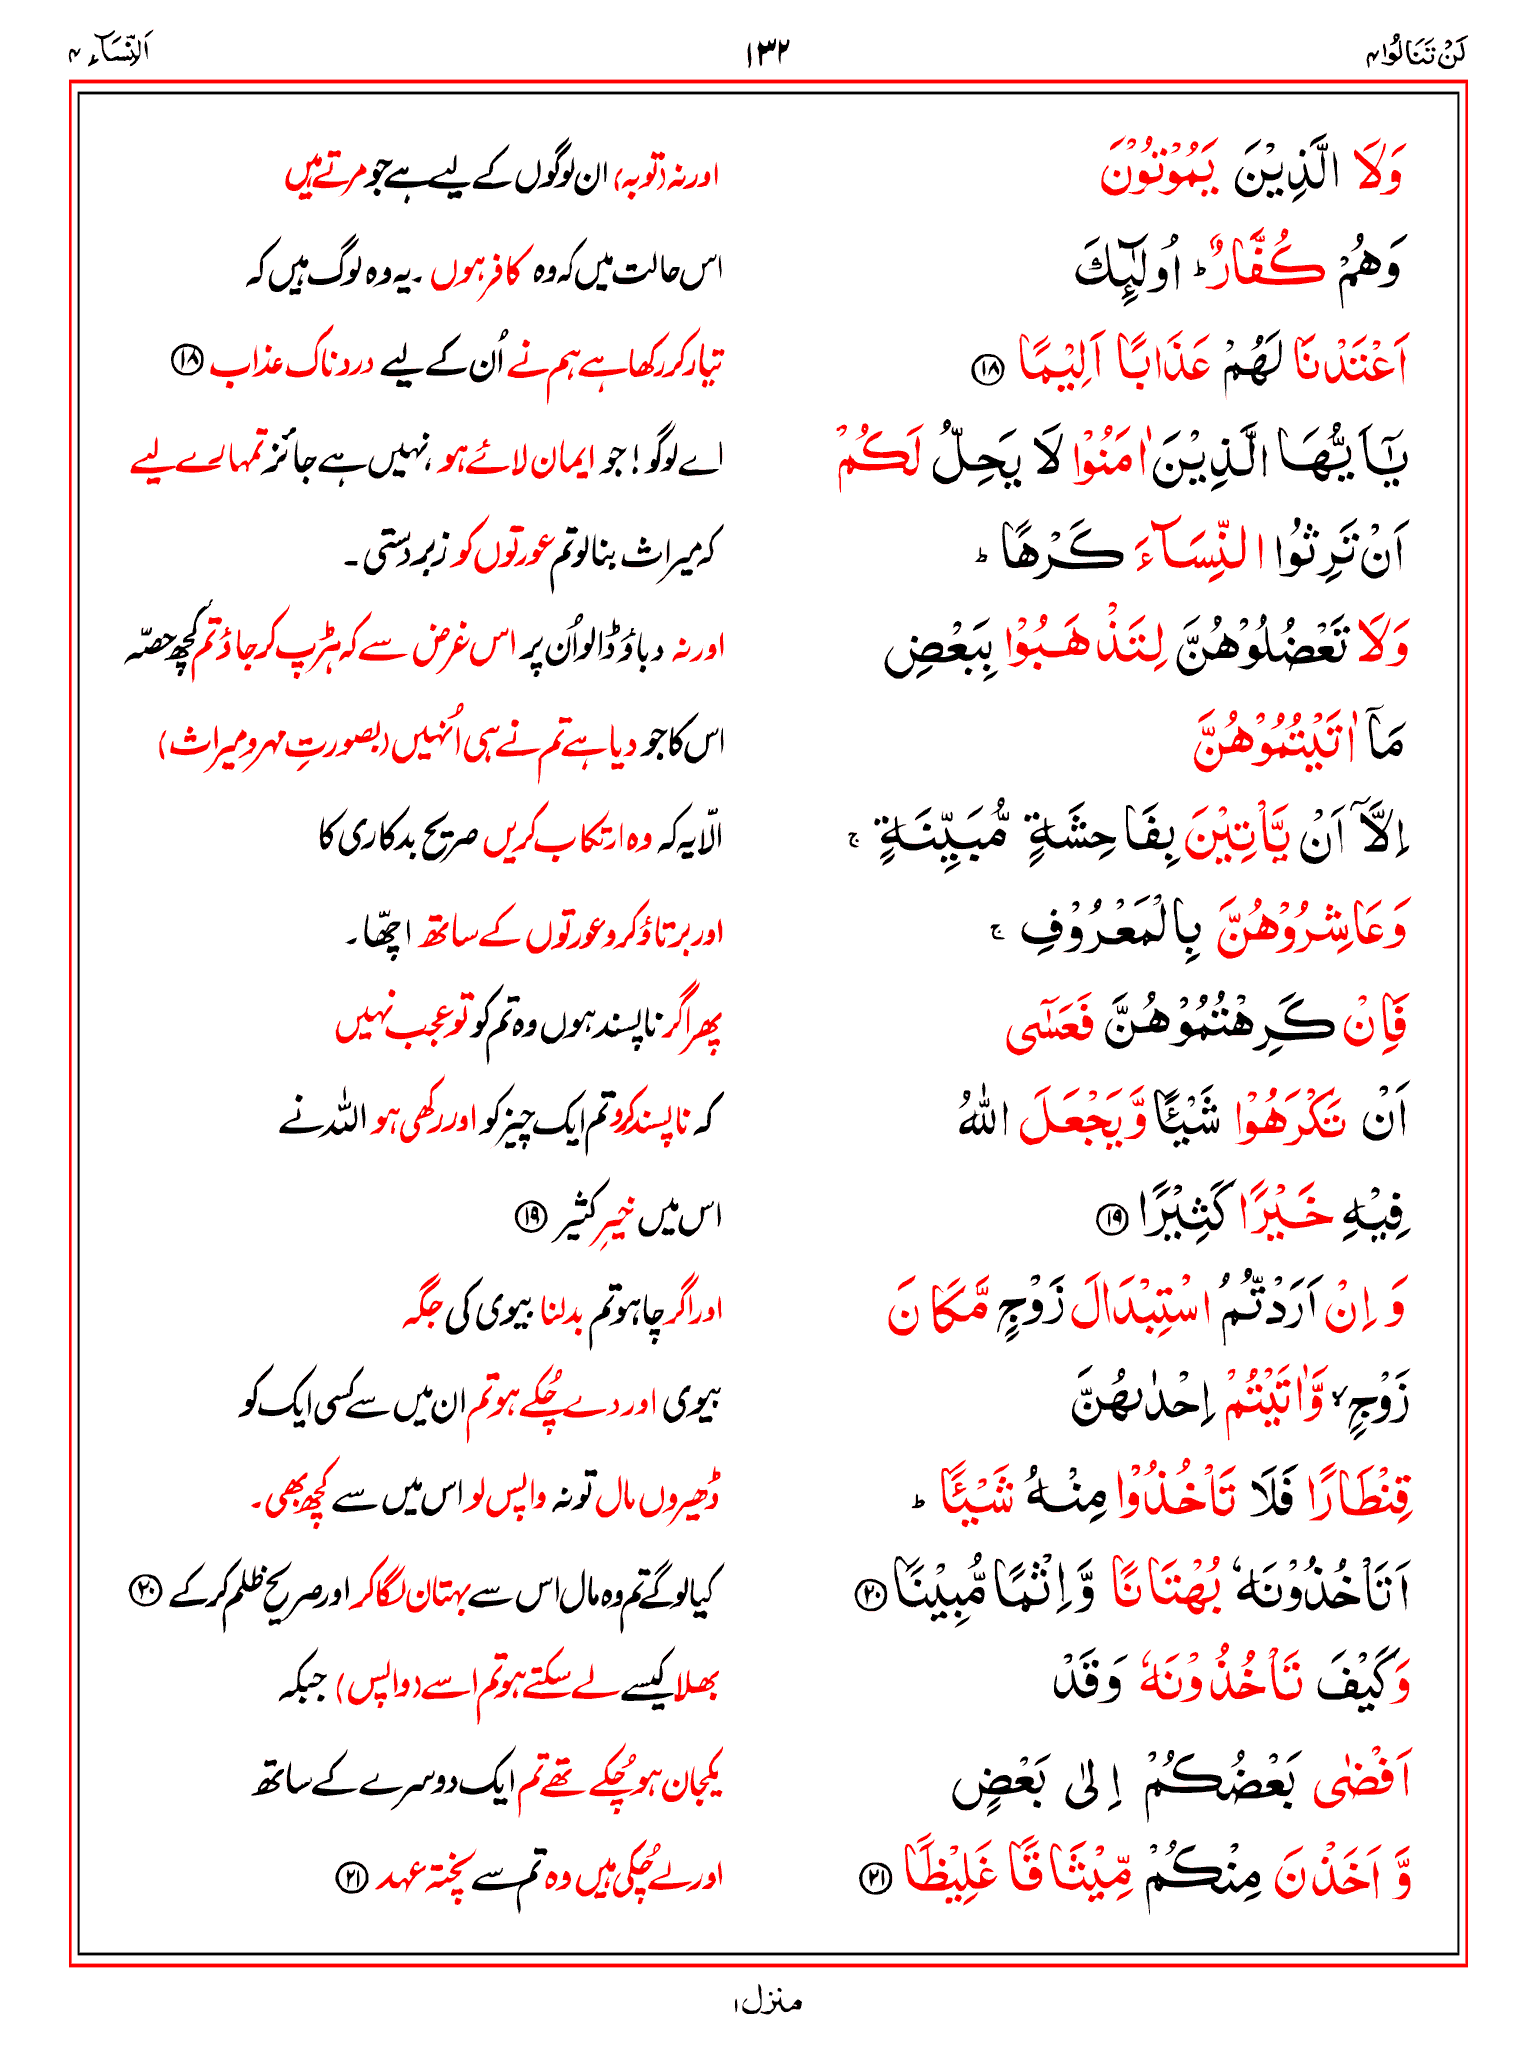 لَنْ تَنَالُوا ۴ ۱۳۲ اَلنِّسَآء ۴
وَلَا الَّذِيْنَ يَمُوْتُوْنَ اور نہ (توبہ) ان لوگوں کے لیے ہے جو مرتے ہیں
وَهُمْ كُفَّارٌ ؕ اُولٰٓئِكَ اس حالت میں کہ وہ کافر ہوں ۔ یہ وہ لوگ ہیں کہ
اَعْتَدْنَا لَهُمْ عَذَابًا اَلِيْمًا ⑱ تیار کر رکھا ہے ہم نے اُن کے لیے دردناک عذاب ⑱
يٰۤاَيُّهَا الَّذِيْنَ اٰمَنُوْا لَا يَحِلُّ لَكُمْ اے لوگو! جو ایمان لائے ہو، نہیں ہے جائز تمہارے لیے
اَنْ تَرِثُوا النِّسَآءَ كَرْهًا ؕ کہ میراث بنالو تم عورتوں کو زبردستی ۔
وَلَا تَعْضُلُوْهُنَّ لِتَذْهَبُوْا بِبَعْضِ اور نہ دباؤ ڈالو اُن پر اس غرض سے کہ ہڑپ کر جاؤ تم کچھ حصّہ
مَاۤ اٰتَيْتُمُوْهُنَّ اس کا جو دیا ہے تم نے ہی اُنہیں (بصورتِ مہر و میراث)
اِلَّاۤ اَنْ يَّاْتِيْنَ بِفَاحِشَةٍ مُّبَيِّنَةٍ ۚ الّا یہ کہ وہ ارتکاب کریں صریح بدکاری کا
وَعَاشِرُوْهُنَّ بِالْمَعْرُوْفِ ۚ اور برتاؤ کرو عورتوں کے ساتھ اچھّا ۔
فَاِنْ كَرِهْتُمُوْهُنَّ فَعَسٰۤى پھر اگر ناپسند ہوں وہ تم کو تو عجب نہیں
اَنْ تَكْرَهُوْا شَيْـًٔا وَّيَجْعَلَ اللّٰهُ کہ ناپسند کرو تم ایک چیز کو اور رکھی ہو اللہ نے
فِيْهِ خَيْرًا كَثِيْرًا ⑲ اس میں خیرِ کثیر ⑲
وَاِنْ اَرَدْتُّمُ اسْتِبْدَالَ زَوْجٍ مَّكَانَ اور اگر چاہو تم بدلنا بیوی کی جگہ
زَوْجٍ ۙ وَّاٰتَيْتُمْ اِحْدٰىهُنَّ بیوی اور دے چُکے ہو تم ان میں سے کسی ایک کو
قِنْطَارًا فَلَا تَاْخُذُوْا مِنْهُ شَيْـًٔا ؕ ڈھیروں مال تو نہ واپس لو اس میں سے کچھ بھی ۔
اَتَاْخُذُوْنَهٗ بُهْتَانًا وَّاِثْمًا مُّبِيْنًا ⑳ کیا لو گے تم وہ مال اس سے بہتان لگا کر اور صریح ظلم کر کے ⑳
وَكَيْفَ تَاْخُذُوْنَهٗ وَقَدْ بھلا کیسے لے سکتے ہو تم اسے (واپس) جبکہ
اَفْضٰى بَعْضُكُمْ اِلٰى بَعْضٍ یکجان ہو چُکے تھے تم ایک دوسرے کے ساتھ
وَّاَخَذْنَ مِنْكُمْ مِّيْثَاقًا غَلِيْظًا ㉑ اور لے چُکی ہیں وہ تم سے پختہ عہد ㉑
منزل ۱